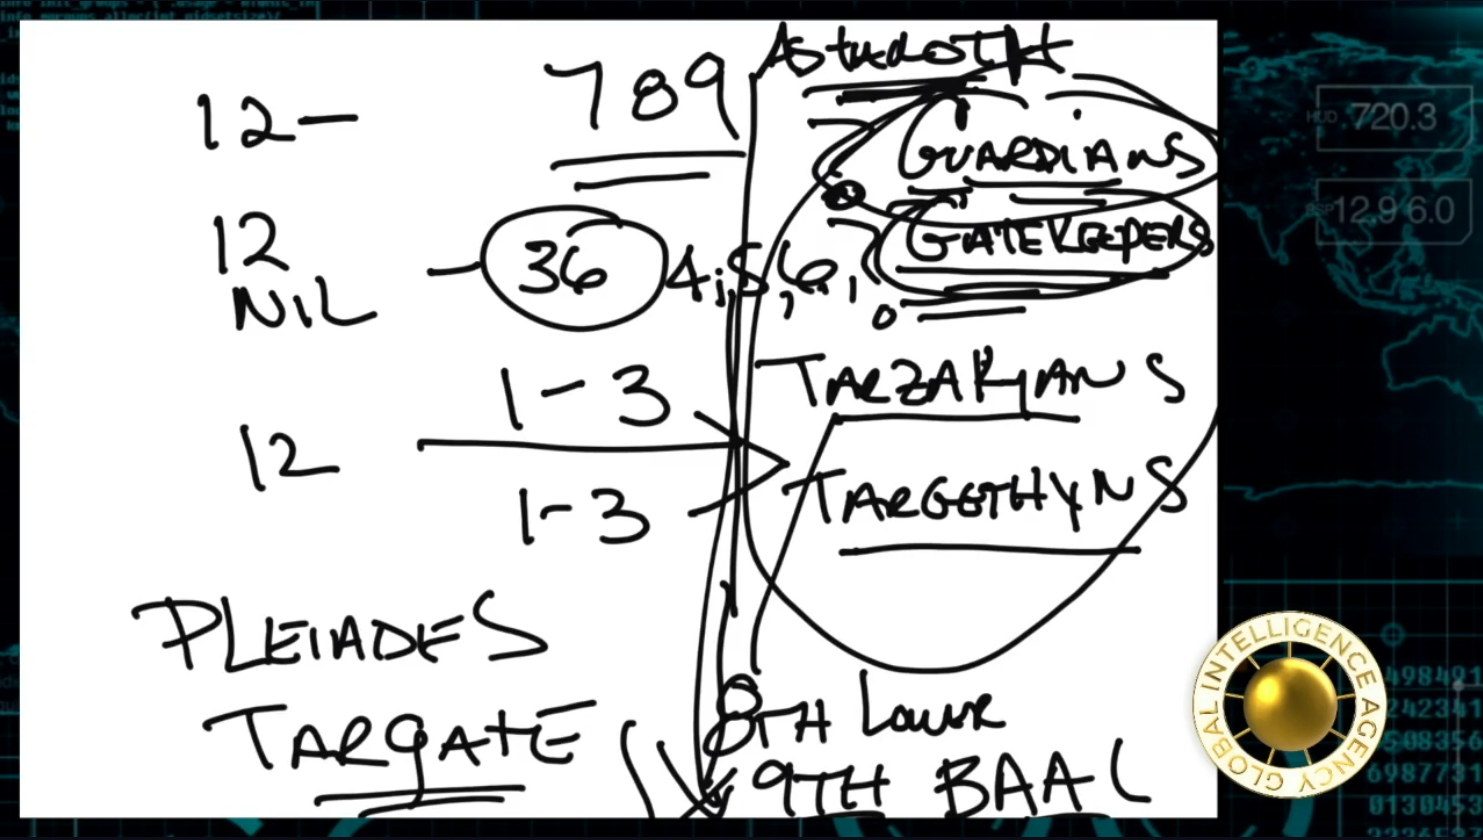 12-
789
12
NIL
- 36 4,5,6,
1-3
12
1-3
PLEIADES
TARGATE
GUARDIANS
GATEKEEPERS
TARZAKYANS
TARGETHYNS
8TH Lower
9TH BAAL
HUD 720.3
12.9 6.0
GLOBAL INTELLIGENCE AGENCY